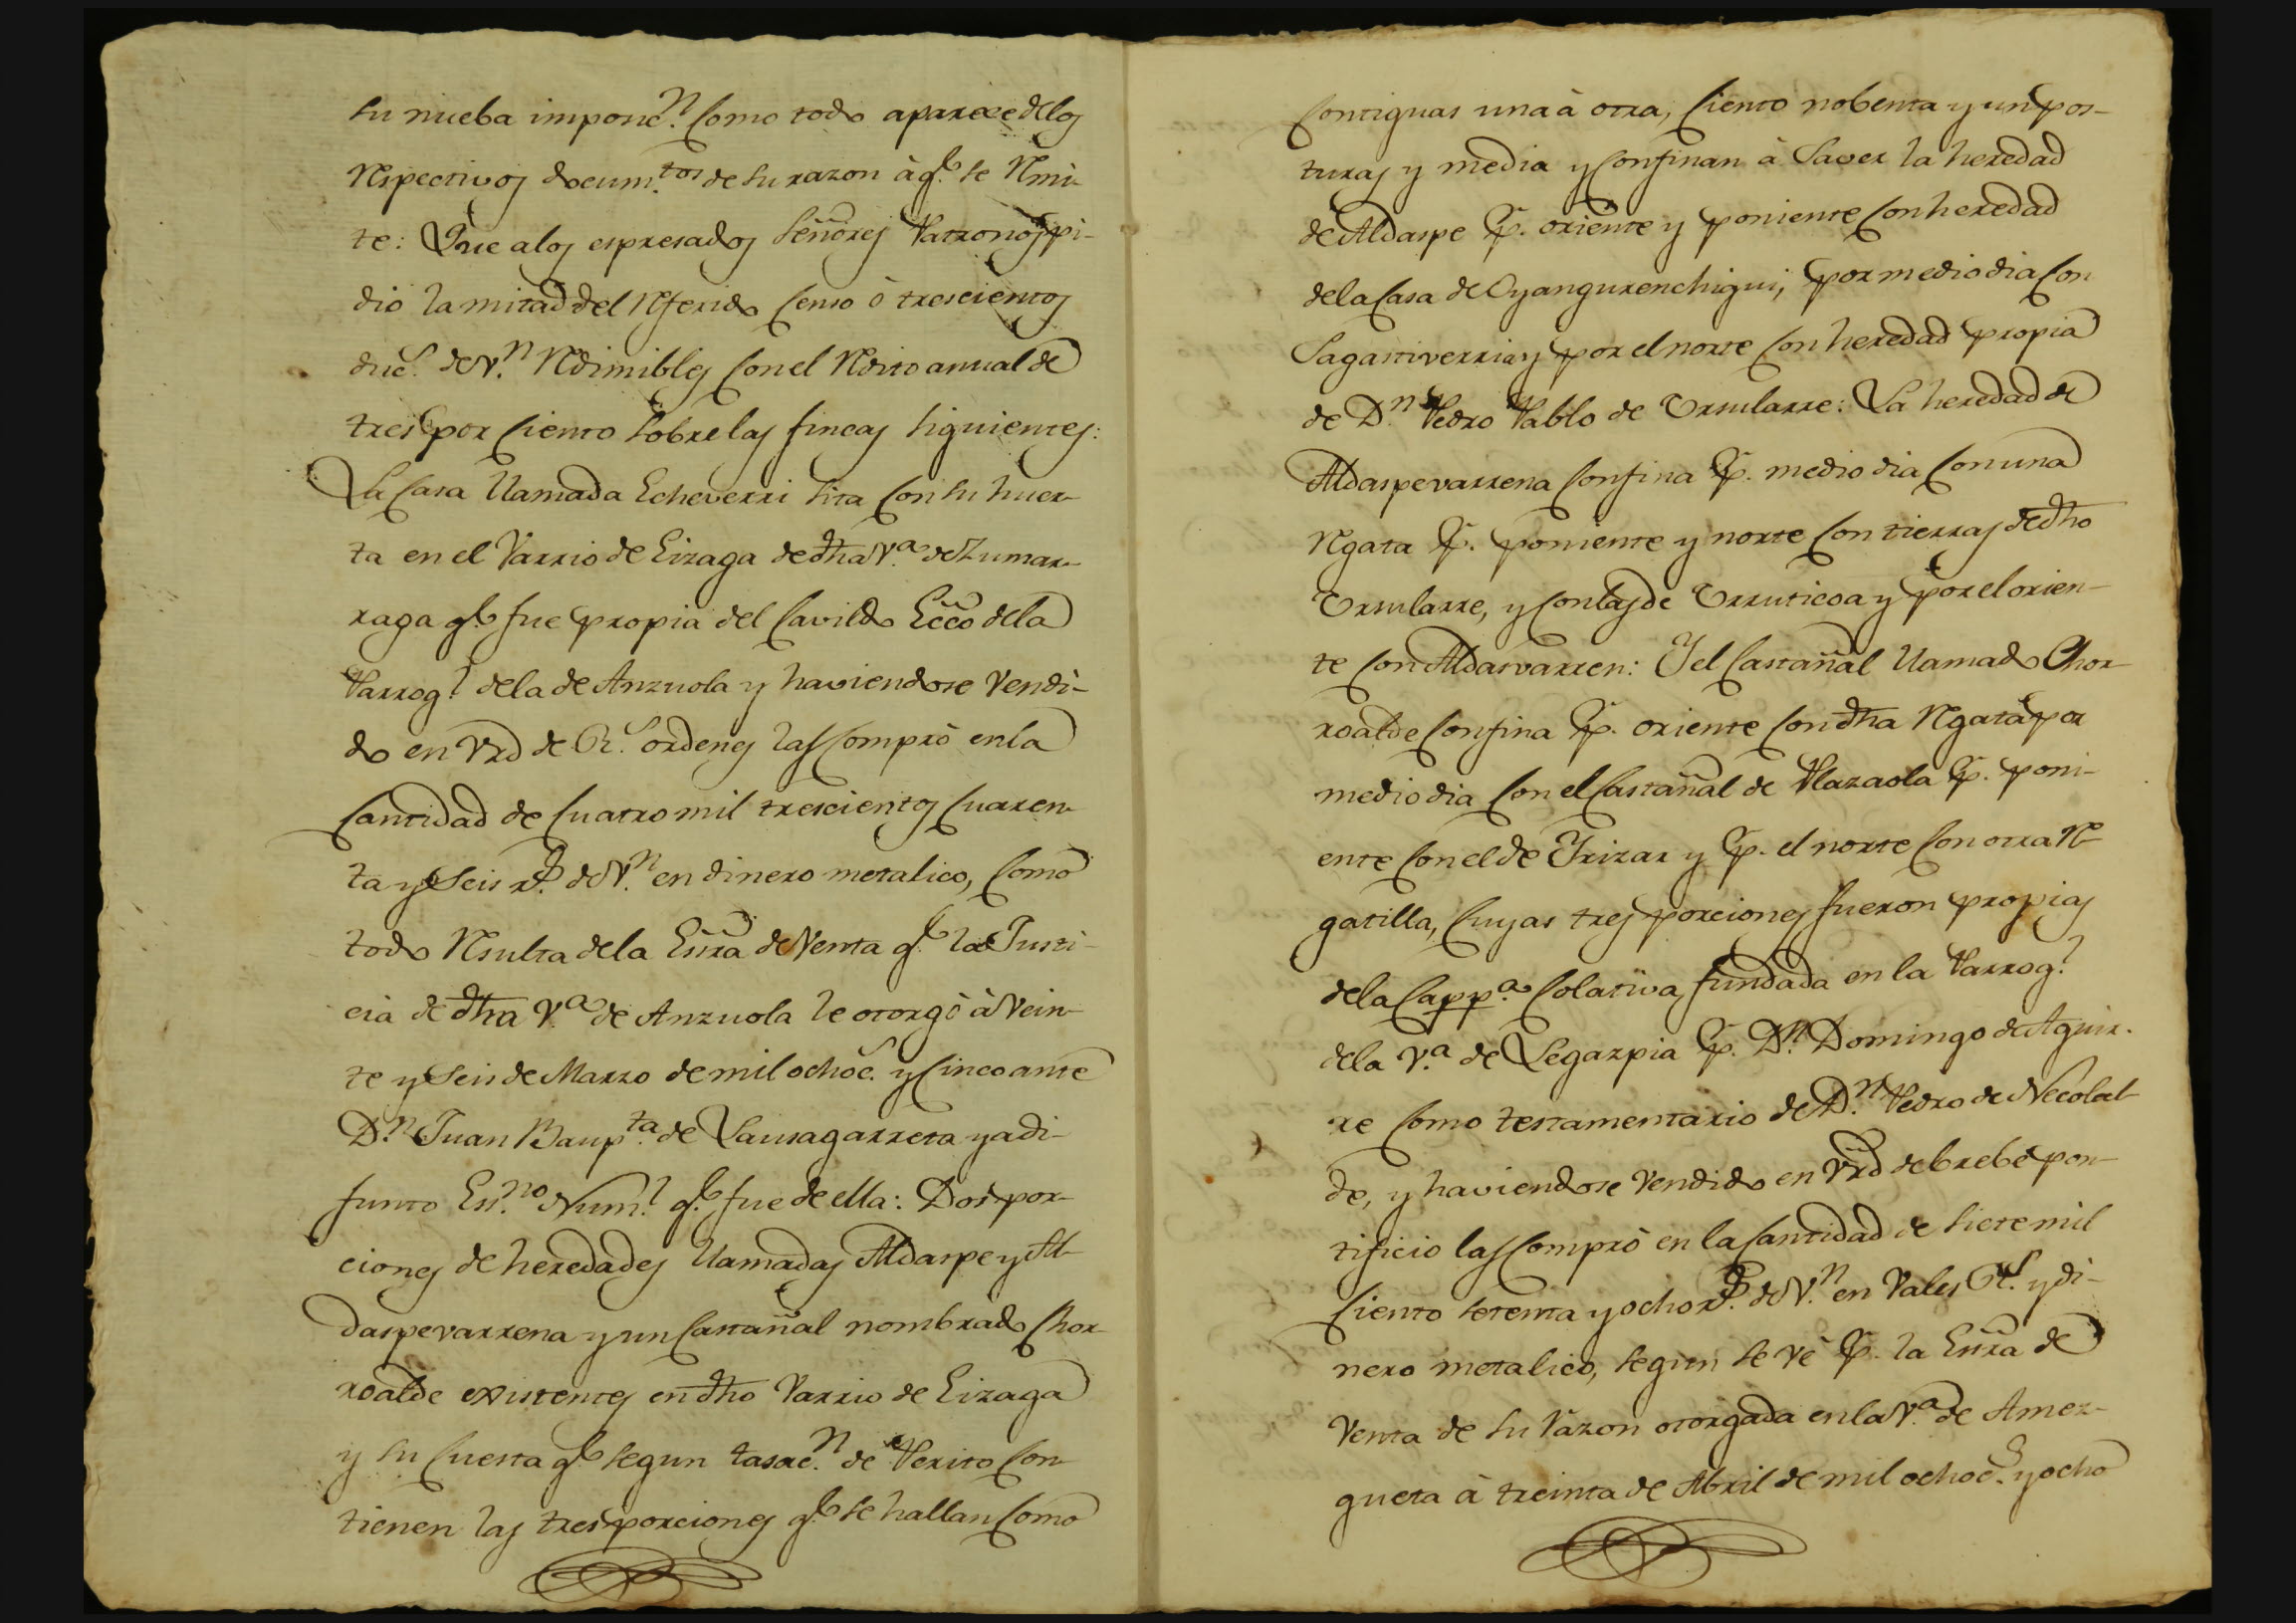 su nueba imponc.n Como todo aparece de los
Respectivos docum.tos de su razon à q.e se Rmi-
te: Que a los espresados Señores Patronos pi-
dió la mitad del Referido Censo ò trescientos
duc.s de v.n Redimibles Con el Redito anual de
tres por Ciento sobre las fincas siguientes:
La Casa llamada Echeverri sita Con su huer-
ta en el Varrio de Eizaga de dha V.a de Zumar-
raga q.e fue propia del Cavildo Ecco de la
Parrog.l de la de Anzuola y haviendose Vendi-
do en Vrd de R.s ordenes las Compró en la
Cantidad de Cuatro mil trescientos Cuaren-
ta y Seis r.s de V.n en dinero metalico, Como
todo Resulta de la Essra de Venta q.e la Justi-
cia de dha V.a de Anzuola le otorgó à Vein-
te y Seis de Marzo de mil ochoc.s y Cinco ante
D.n Juan Baup.ta de Lausagarreta ya di-
funto Ess.no Num.l q.e fue de ella: Dos por-
ciones de heredades llamadas Aldaspe y Al-
daspevarrena y un Castañal nombrado Chor-
roalde existentes en dho Varrio de Eizaga
y su Cuesta q.e segun tasac.n de Perito Con-
tienen las tres porciones q.e se hallan Como
Contiguas una à otra, Ciento nobenta y un pos-
turas y media y Confinan à Saver la heredad
de Aldaspe p.r oriente y poniente Con heredad
de la Casa de Oyangurenchigui, por medio dia Con
Sagastiverria y por el norte Con heredad propia
de D.n Pedro Pablo de Ursularre: La heredad de
Aldaspevarrena Confina p.r medio dia Con una
Regata p.r poniente y norte Con tierras de dho
Ursularre, y Con las de Urruticoa y por el orien-
te Con Aldasvarren: Y el Castañal llamado Chor-
roalde Confina p.r oriente Con dha Regata por
medio dia Con el Castañal de Plazaola p.r poni-
ente Con el de Yrizar y p.r el norte Con otra Re-
gatilla, Cuyas tres porciones fueron propias
de la Capp.a Colativa fundada en la Parrog.l
de la V.a de Legazpia p.r D.n Domingo de Aguir-
re Como testamentario de D.n Pedro de Necolal-
de, y haviendose Vendido en Vrd de brebe pon-
tificio las Compró en la Cantidad de Siete mil
Ciento setenta y ocho r.s de V.n en Vales R.s y di-
nero metalico, segun se vé p.r la Essra de
Venta de su razon otorgada en la V.a de Amez-
queta à treinta de Abril de mil ochoc.s y ocho